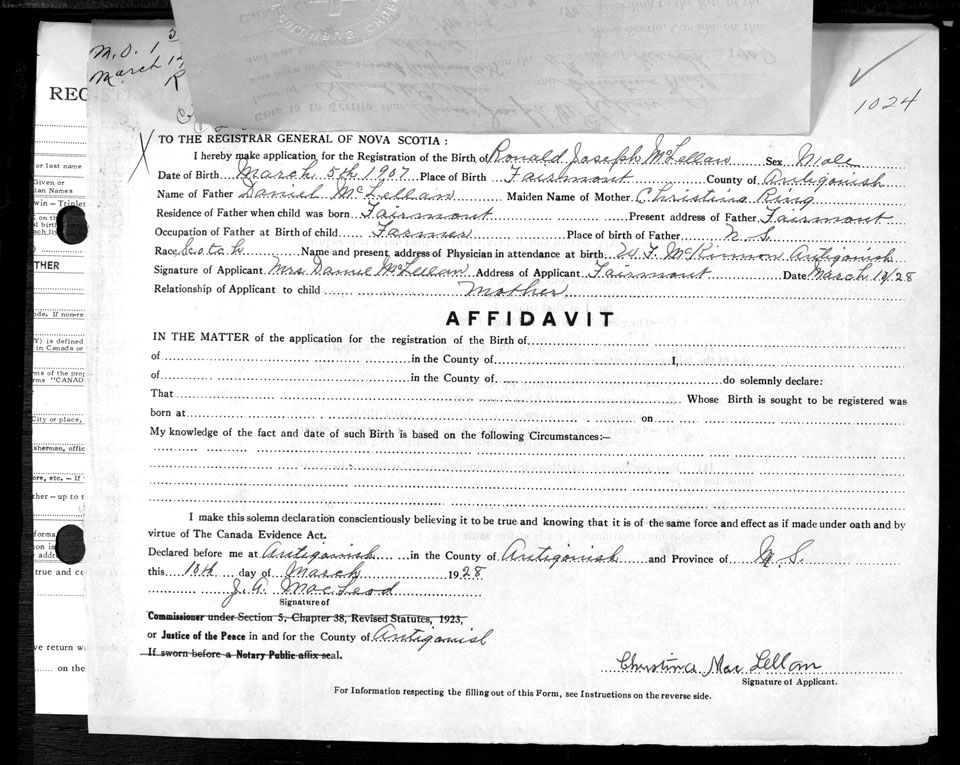 M.O. 1 3
March 1
R
1024
REG
TO THE REGISTRAR GENERAL OF NOVA SCOTIA :
I hereby make application for the Registration of the Birth of Ronald Joseph McLellan Sex Male
Date of Birth March 5th 1907 Place of Birth Fairmont County of Antigonish
Name of Father Daniel McLellan Maiden Name of Mother Christina King
Residence of Father when child was born Fairmont Present address of Father Fairmont
Occupation of Father at Birth of child Farmer Place of birth of Father N.S.
Race Scotch Name and present address of Physician in attendance at birth W F McKinnon Antigonish
Signature of Applicant Mrs Daniel McLellan Address of Applicant Fairmont Date March 10/28
Relationship of Applicant to child Mother
AFFIDAVIT
IN THE MATTER of the application for the registration of the Birth of
of in the County of I,
of in the County of do solemnly declare:
That Whose Birth is sought to be registered was
born at on
My knowledge of the fact and date of such Birth is based on the following Circumstances:—
I make this solemn declaration conscientiously believing it to be true and knowing that it is of the same force and effect as if made under oath and by
virtue of The Canada Evidence Act.
Declared before me at Antigonish in the County of Antigonish and Province of N.S.
this 10th day of March 1928
J. A. MacLeod
Signature of
Commissioner under Section 5, Chapter 38, Revised Statutes, 1923,
or Justice of the Peace in and for the County of Antigonish
If sworn before a Notary Public affix seal.
Christina MacLellan
Signature of Applicant.
For Information respecting the filling out of this Form, see Instructions on the reverse side.
or last name
Given or
ian Names
win – Triplet
THER
ode. If non-re
Y) is defined
in Canada or
rms of the prop
rms "CANAD
City or place,
sherman, offic
ore, etc. – If
ther – up to t
true and co
ve return w
on the